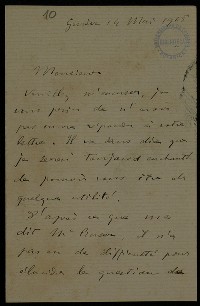 10
Genève 14 Mai 1905
Monsieur
Veuillez m'excuser, je
vous prie de n'avoir
pas encore répondu à votre
lettre. Il va sans dire que
je serai toujours enchanté
de pouvoir vous être de
quelque utilité.
D'après ce que m'a
dit Mr il n'y a
pas eu de difficulté pour
la question de